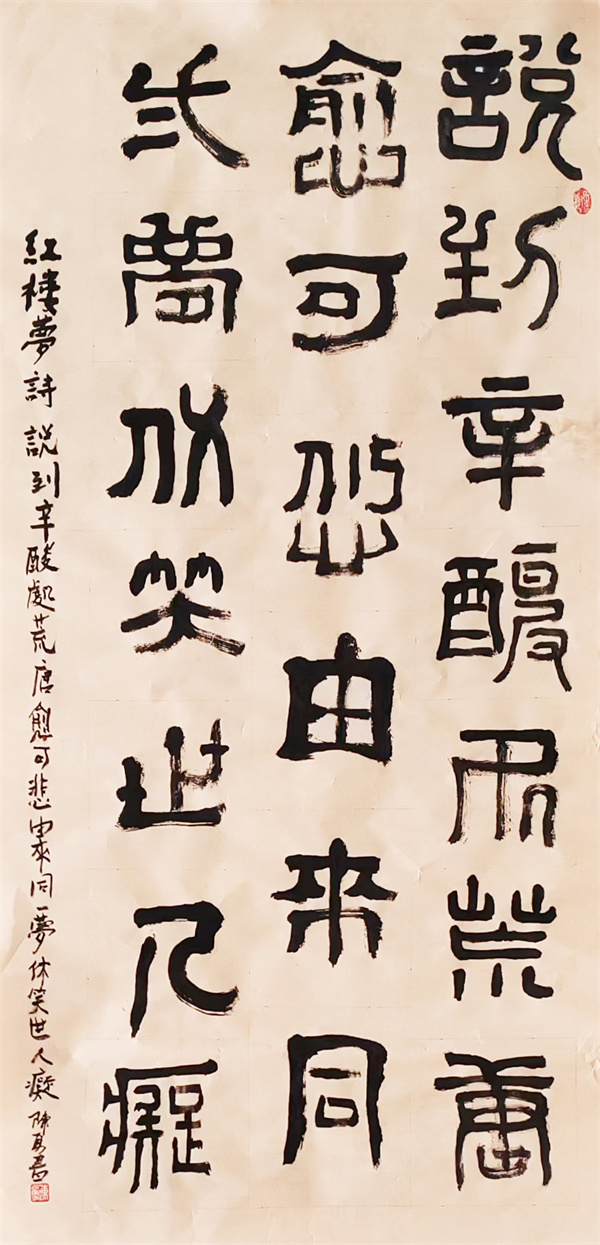 說到辛酸処荒唐
愈可悲由來同
弌夢休笑世人癡
紅樓夢詩 説到辛酸處荒唐愈可悲由來同一夢休笑世人癡